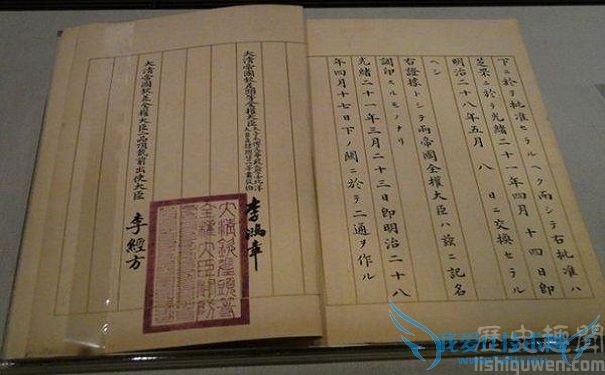 下ニ於テ批准セラルヘク而シテ右批准ハ
芝罘ニ於テ光緒二十一年四月 十四日即
明治二十八年五月 八 日ニ交換セラル
ヘシ
右證據トシテ兩帝國全權大臣ハ茲ニ記名
調印スルモノナリ
光緒二十一年三月二十三日即明治二十八
年四月十七日下ノ關ニ於テ二通ヲ作ル
大清帝國欽差頭等全權大臣 李鴻章
大清帝國欽差全權大臣二品頂戴前出使大臣 李經方
歷史趣聞
lishiquwen.com